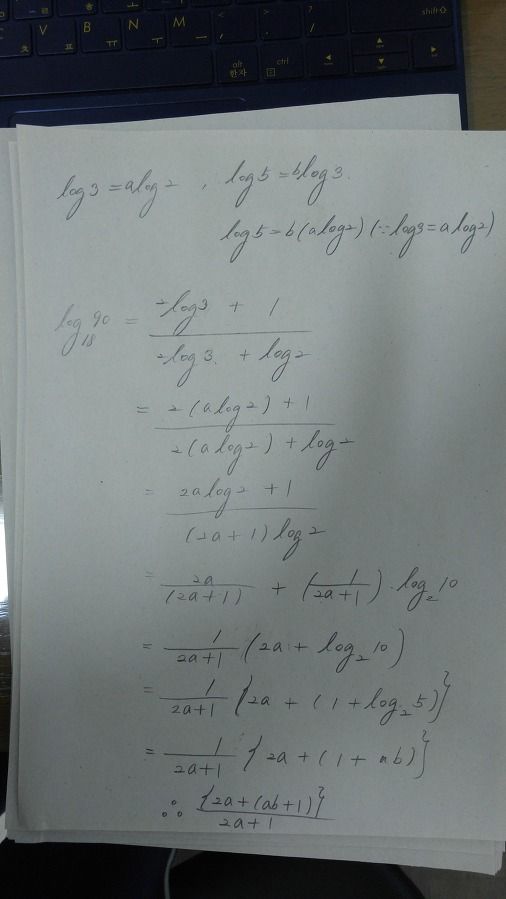 ㅊ ㅍ V ㅠ B ㅜ N ㅡ M < , > . ? / shift
alt 한자 ctrl
log3 = alog2 , log5 = blog3.
log5 = b(alog2) (∵log3 = alog2)
log₁₈90 = (2log3 + 1) / (2log3. + log2)
= (2(alog2) + 1) / (2(alog2) + log2)
= (2alog2 + 1) / ((2a+1)log2)
= 2a/(2a+1) + (1/(2a+1)) · log₂10
= 1/(2a+1) (2a + log₂10)
= 1/(2a+1) {2a + (1 + log₂5)}
= 1/(2a+1) {2a + (1 + ab)}
∴ {2a+(ab+1)} / 2a+1